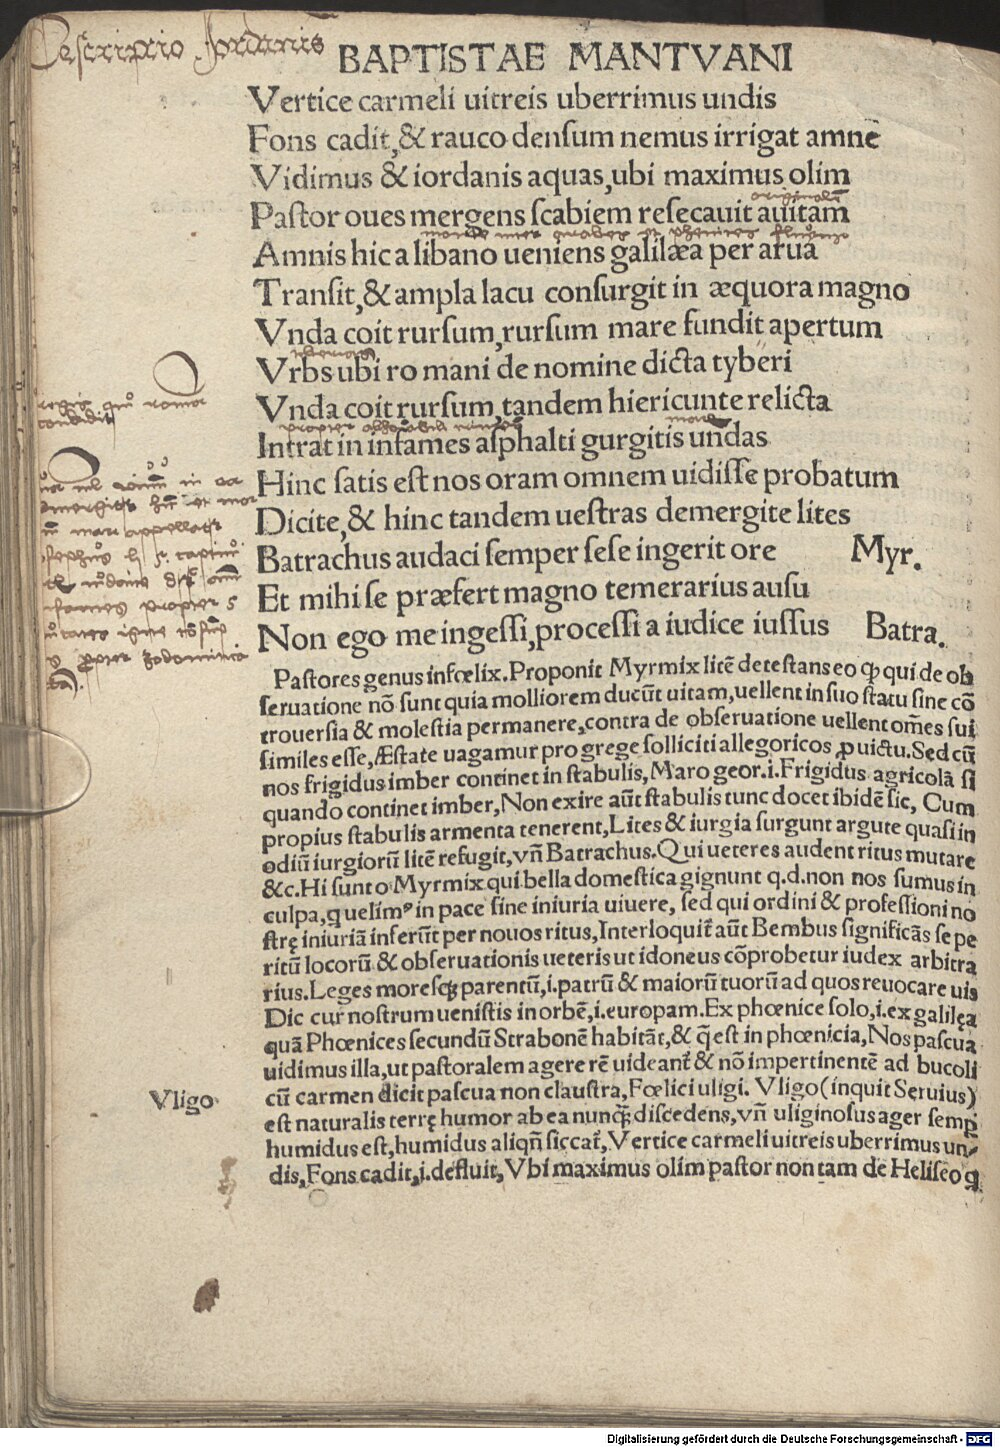 Descriptio Jordanis
BAPTISTAE MANTVANI
Vertice carmeli uitreis uberrimus undis
Fons cadit,& rauco densum nemus irrigat amnē
Vidimus & iordanis aquas,ubi maximus olim
Pastor oues mergens scabiem resecauit auitam
Amnis hic a libano ueniens galilæa per arua
Transit,& ampla lacu consurgit in æquora magno
Vnda coit rursum,rursum mare fundit apertum
Vrbs ubi ro mani de nomine dicta tyberi
Vnda coit rursum,tandem hiericunte relicta
Intrat in infames asphalti gurgitis undas
Hinc satis est nos oram omnem uidisse probatum
Dicite,& hinc tandem uestras demergite lites
Batrachus audaci semper sese ingerit ore Myr.
Et mihi se præfert magno temerarius ausu
Non ego me ingessi,processi a iudice iussus Batra.
Pastores genus infœlix.Proponit Myrmix litē detestans eo ꝙ qui de ob
seruatione nō sunt quia molliorem ducūt uitam,uellent in suo statu sine cō
trouersia & molestia permanere,contra de obseruatione uellent om̄es sui
similes esse,Æstate uagamur pro grege solliciti allegoricos ꝓ uictu.Sed cū
nos frigidus imber continet in stabulis,Maro geor.i.Frigidus agricolā si
quando continet imber,Non exire aūt stabulis tunc docet ibidē sic, Cum
propius stabulis armenta tenerent,Lites & iurgia surgunt argute quasi in
odiū iurgiorū litē refugit,vn̄ Batrachus.Qui ueteres audent ritus mutare
&c.Hi sunt o Myrmix qui bella domestica gignunt q.d.non nos sumus in
culpa,q uelimꝰ in pace sine iniuria uiuere, sed qui ordini & professioni no
strę iniuriā inferūt per nouos ritus,Interloquit̄ aūt Bembus significās se pe
ritū locorū & obseruationis ueteris ut idoneus cōprobetur iudex arbitra
rius.Leges moresqꝫ parentū,i.patrū & maiorū tuorū ad quos reuocare uis
Dic cur nostrum uenistis in orbē,i.europam.Ex phœnice solo,i.ex galilęa
quā Phœnices secundū Strabonē habitāt,& q̄ est in phœnicia,Nos pascua
uidimus illa,ut pastoralem agere rē uideant̄ & nō impertinentē ad bucoli
cū carmen dicit pascua non claustra,Fœlici uligi. Vligo(inquit Seruius)
Vligo
est naturalis terrę humor ab ea nunqꝫ discedens,vn̄ uliginosus ager semꝑ
humidus est,humidus aliqn̄ siccat̄,Vertice carmeli uitreis uberrimus un-
dis,Fons cadit,i.defluit,Vbi maximus olim pastor non tam de Heliseo q
Digitalisierung gefördert durch die Deutsche Forschungsgemeinschaft - DFG